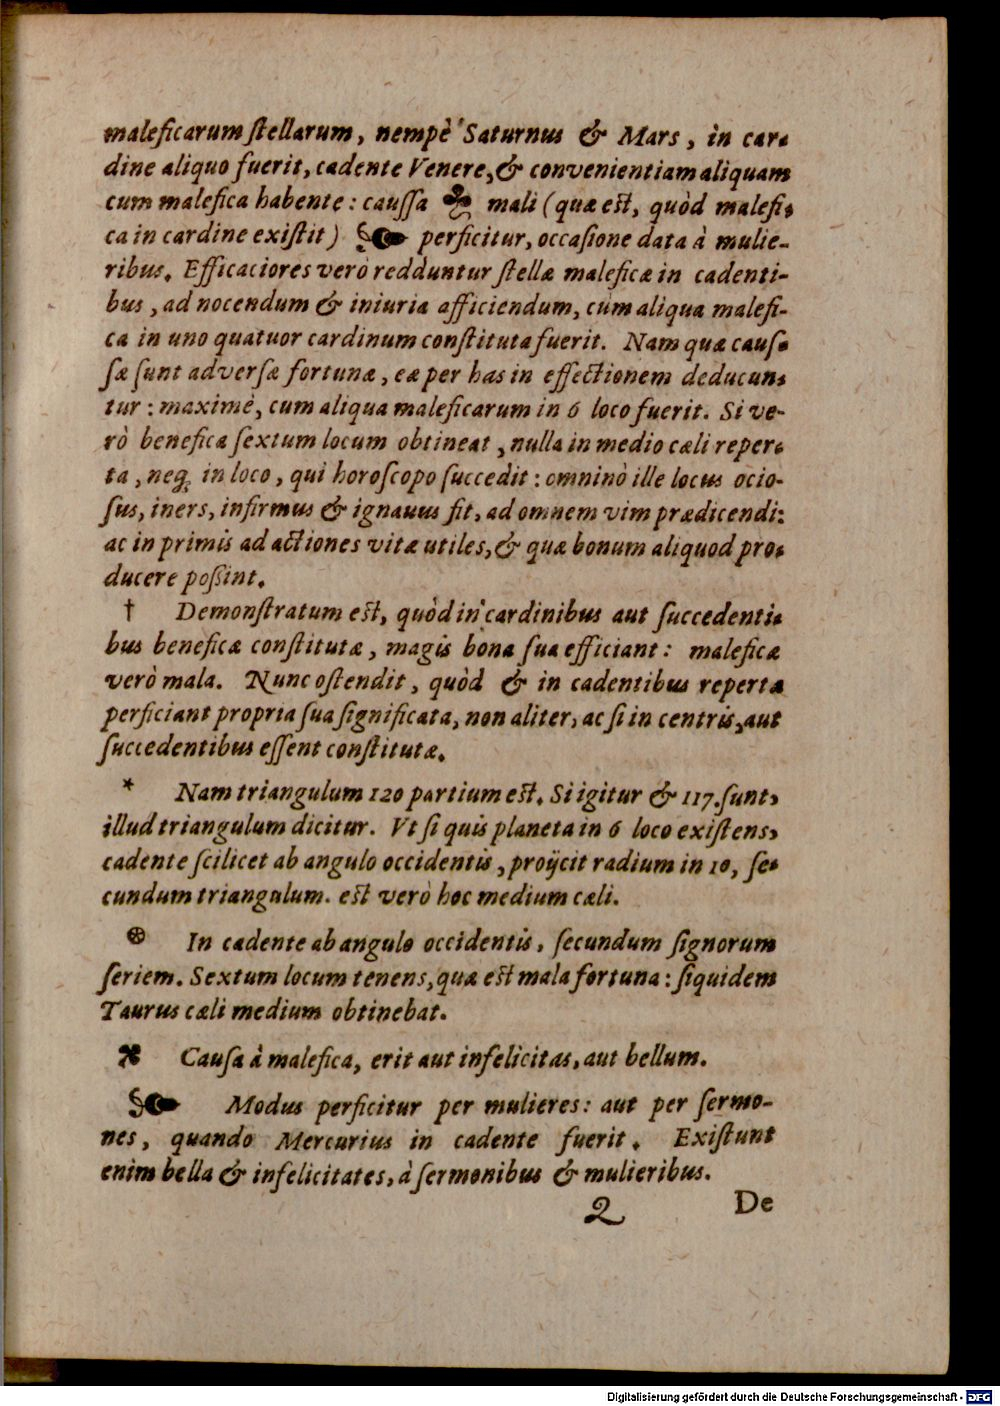 maleficarum ſtellarum, nempè Saturnus & Mars, in car-
dine aliquo fuerit, cadente Venere, & convenientiam aliquam
cum malefica habente: cauſſa ♣ mali (quæ eſt, quòd malefi-
ca in cardine exiſtit) ☞ perficitur, occaſione data à mulie-
ribus. Efficaciores verò redduntur ſtellæ maleficæ in cadenti-
bus, ad nocendum & iniuria afficiendum, cùm aliqua malefi-
ca in uno quatuor cardinum conſtituta fuerit. Nam quæ cauſ-
ſæ ſunt adverſæ fortunæ, eæ per has in effectionem deducun-
tur: maximè, cum aliqua maleficarum in 6 loco fuerit. Si ve-
rò benefica ſextum locum obtineat, nulla in medio cæli reper-
ta, neq; in loco, qui horoſcopo ſuccedit: omninò ille locus ocio-
ſus, iners, infirmus & ignauus fit, ad omnem vim prædicendi:
ac in primis ad actiones vitæ utiles, & quæ bonum aliquod pro-
ducere poſſint.
† Demonſtratum eſt, quòd in cardinibus aut ſuccedenti-
bus beneficæ conſtitutæ, magis bona ſua efficiant: maleficæ
verò mala. Nunc oſtendit, quòd & in cadentibus reperta
perficiant propria ſua ſignificata, non aliter, ac ſi in centris, aut
ſuccedentibus eſſent conſtitutæ.
* Nam triangulum 120 partium eſt. Si igitur & 117. ſunt,
illud triangulum dicitur. Vt ſi quis planeta in 6 loco exiſtens,
cadente ſcilicet ab angulo occidentis, proijcit radium in 10, ſe-
cundum triangulum. eſt verò hoc medium cæli.
⊛ In cadente ab angulo occidentis, ſecundum ſignorum
ſeriem. Sextum locum tenens, quæ eſt mala fortuna: ſiquidem
Taurus cæli medium obtinebat.
✖ Cauſa à malefica, erit aut infelicitas, aut bellum.
☞ Modus perficitur per mulieres: aut per ſermo-
nes, quando Mercurius in cadente fuerit. Exiſtunt
enim bella & infelicitates, à ſermonibus & mulieribus.
2 De
Digitalisierung gefördert durch die Deutsche Forschungsgemeinschaft - DFG